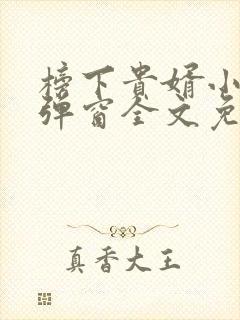 榜下贵婿小
弹窗全文免
真香大王